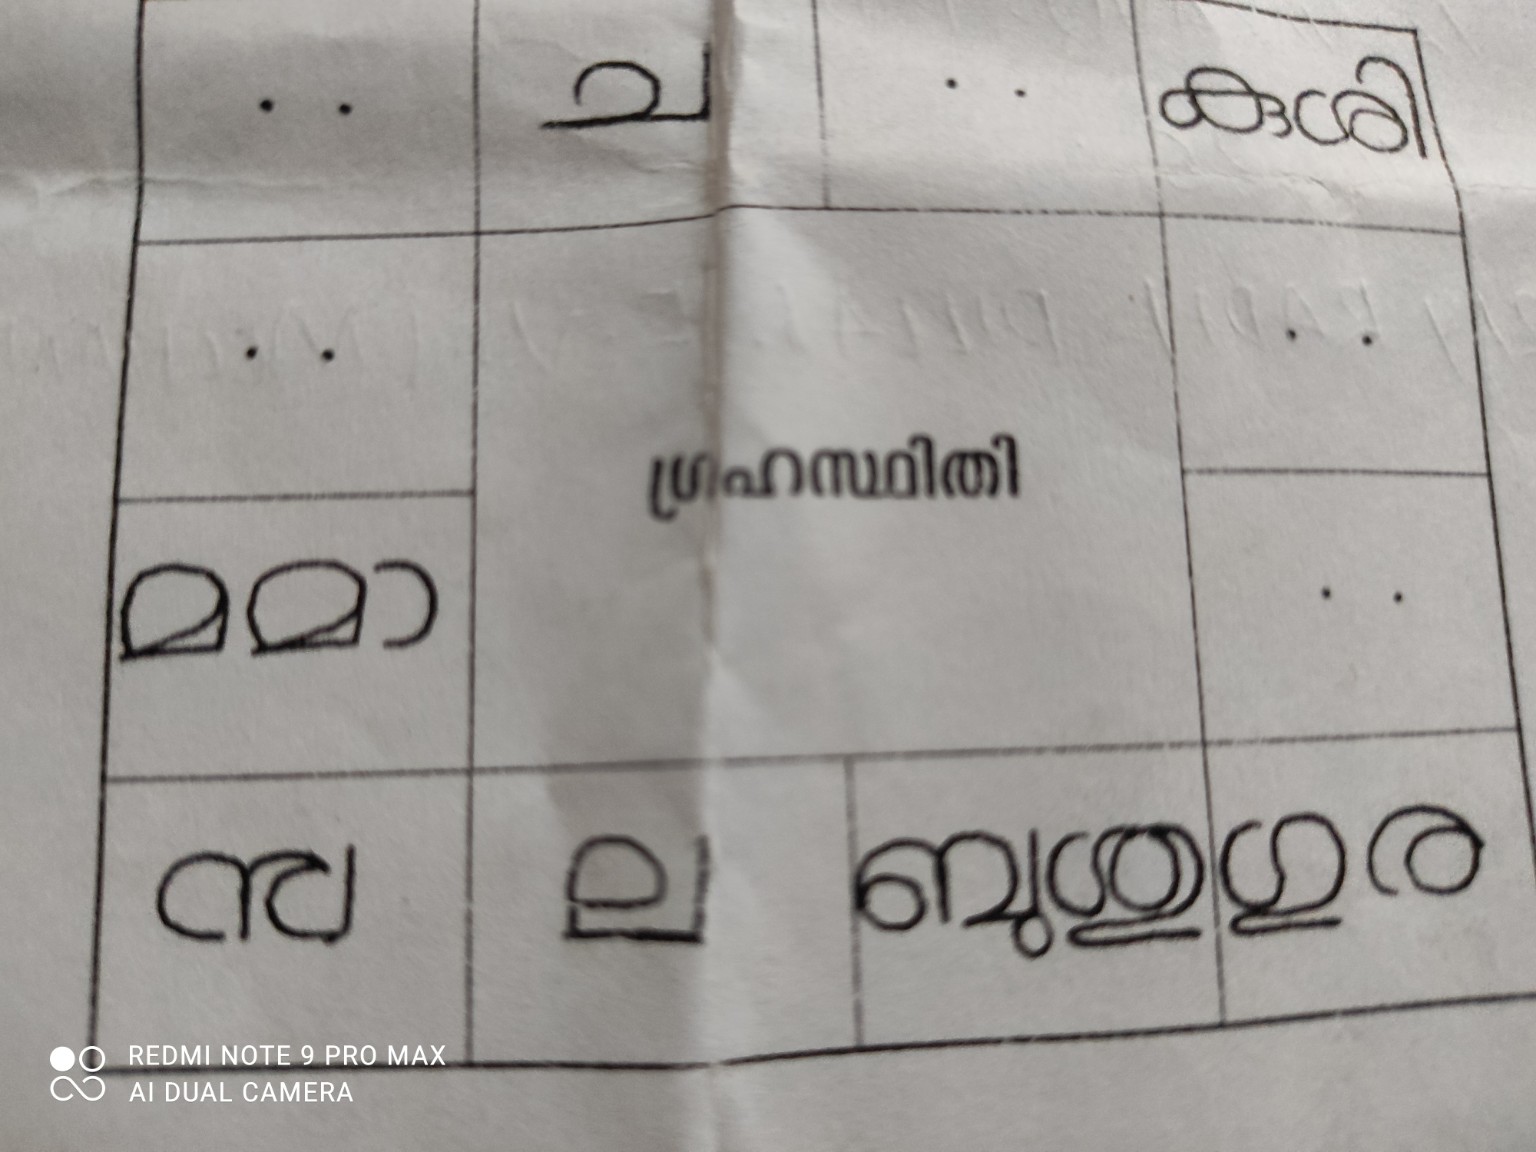 . . ച . . കുശി
. . . .
ഗ്രഹസ്ഥിതി
മ മാ . .
സ്വ ല ബു ശു ഗു ര
REDMI NOTE 9 PRO MAX
AI DUAL CAMERA